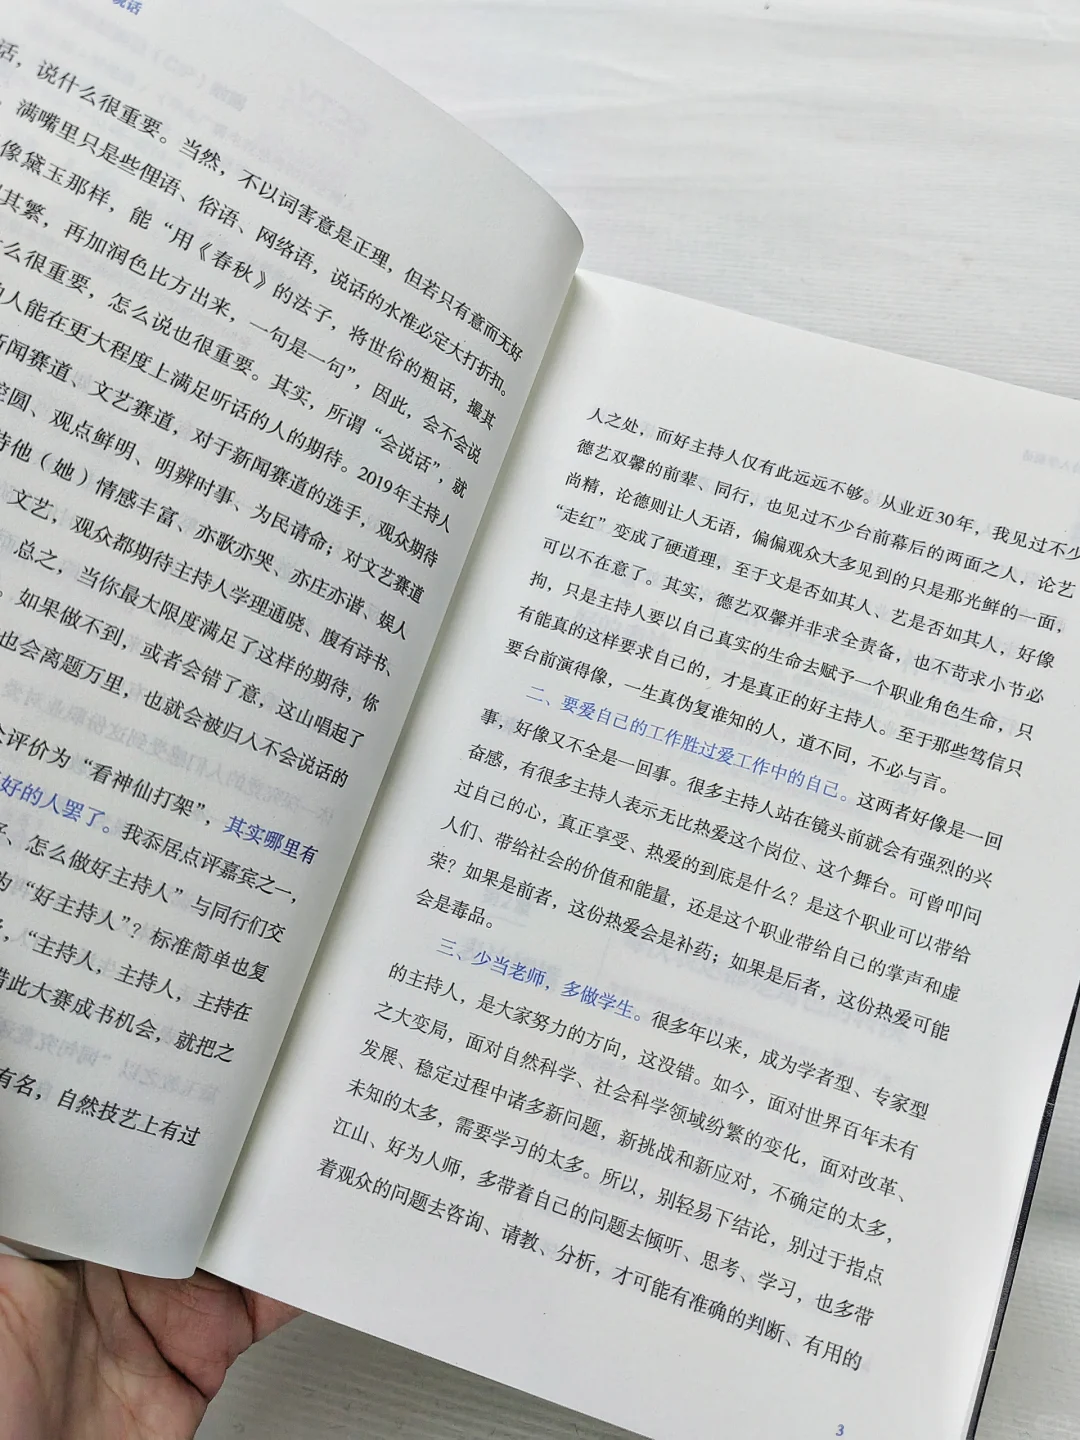 说话
话，说什么很重要。当然，不以词害意是正理，但若只有意而无好
，满嘴里只是些俚语、俗语、网络语，说话的水准必定大打折扣。
像黛玉那样，能“用《春秋》的法子，将世俗的粗话，撮其
其繁，再加润色比方出来，一句是一句”，因此，会不会说
什么很重要，怎么说也很重要。其实，所谓“会说话”，就
的人能在更大程度上满足听话的人的期待。2019年主持人
新闻赛道、文艺赛道，对于新闻赛道的选手，观众期待
圆、观点鲜明、明辨时事、为民请命；对文艺赛道
持他（她）情感丰富、亦歌亦哭、亦庄亦谐、娱人
文艺，观众都期待主持人学理通晓、腹有诗书、
总之，当你最大限度满足了这样的期待，你
。如果做不到，或者会错了意，这山唱起了
也会离题万里，也就会被归入不会说话的
评价为“看神仙打架”，其实哪里有
好的人罢了。我忝居点评嘉宾之一，
、怎么做好主持人”与同行们交
为“好主持人”？标准简单也复
，“主持人，主持人，主持在
借此大赛成书机会，就把之
有名，自然技艺上有过
人之处，而好主持人仅有此远远不够。从业近30年，我见过不少
德艺双馨的前辈、同行，也见过不少台前幕后的两面之人，论艺
尚精，论德则让人无语，偏偏观众大多见到的只是那光鲜的一面，
“走红”变成了硬道理，至于文是否如其人、艺是否如其人，好像
可以不在意了。其实，德艺双馨并非求全责备，也不苛求小节必
拘，只是主持人要以自己真实的生命去赋予一个职业角色生命，只
有能真的这样要求自己的，才是真正的好主持人。至于那些笃信只
要台前演得像，一生真伪复谁知的人，道不同，不必与言。
二、要爱自己的工作胜过爱工作中的自己。这两者好像是一回
事，好像又不全是一回事。很多主持人站在镜头前就会有强烈的兴
奋感，有很多主持人表示无比热爱这个岗位、这个舞台。可曾叩问
过自己的心，真正享受、热爱的到底是什么？是这个职业可以带给
人们、带给社会的价值和能量，还是这个职业带给自己的掌声和虚
荣？如果是前者，这份热爱会是补药；如果是后者，这份热爱可能
会是毒品。
三、少当老师，多做学生。很多年以来，成为学者型、专家型
的主持人，是大家努力的方向，这没错。如今，面对世界百年未有
之大变局，面对自然科学、社会科学领域纷繁的变化，面对改革、
发展、稳定过程中诸多新问题，新挑战和新应对，不确定的太多，
未知的太多，需要学习的太多。所以，别轻易下结论，别过于指点
江山、好为人师，多带着自己的问题去倾听、思考、学习，也多带
着观众的问题去咨询、请教、分析，才可能有准确的判断、有用的
3